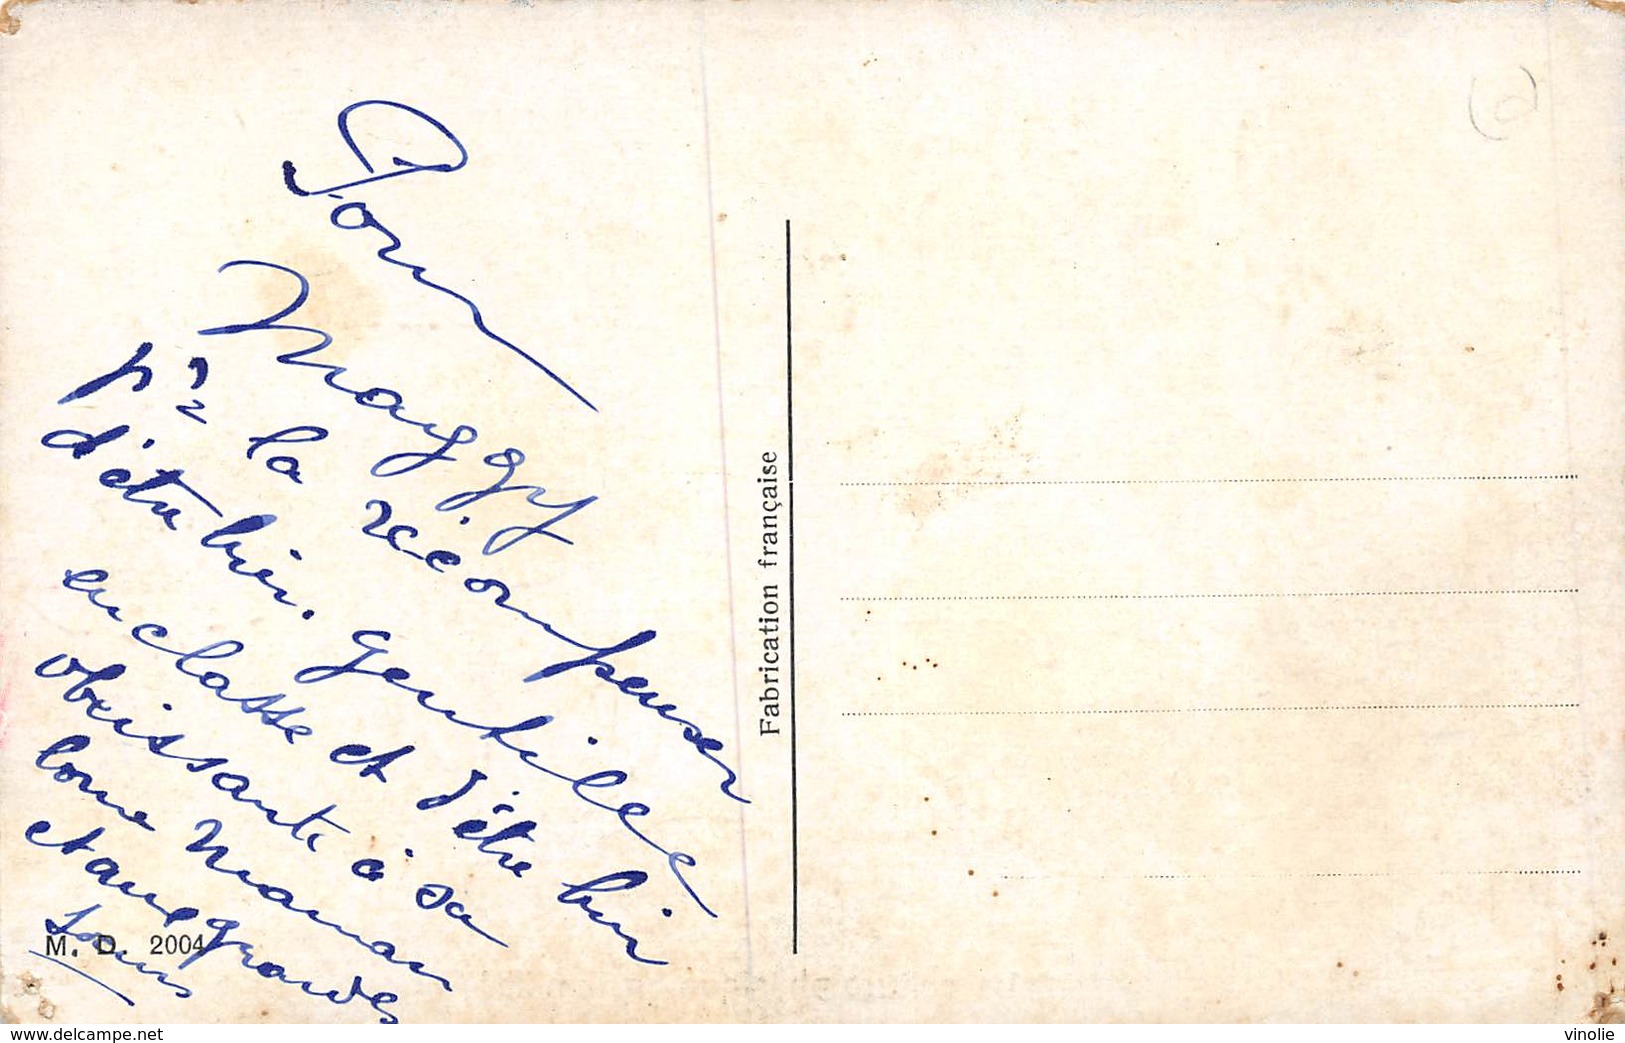 Pour
Maggy
pr la récompenser
d'être bien gentille
en classe et d'être bien
obéissante à sa
bonne Maman
et aux grandes
Soeurs
M. D. 2004
Fabrication française
www.delcampe.net
vinolie